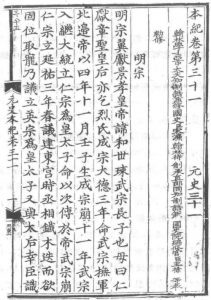 本紀卷第三十一　元史三十一
翰林學士亞中大夫知制誥兼修國史臣宋濂　翰林待制承直郎同知制誥兼國史院編修官臣王禕奉
勑修
明宗
明宗翼獻景孝皇帝諱和世㻋武宗長子也母曰仁
獻章聖皇后亦乞烈氏成宗大德三年命武宗撫軍
北邊帝以四年十一月壬子生成宗崩十一年武宗
入繼大統立仁宗爲皇太子命以次傳於帝武宗崩
仁宗立延祐三年春議建東宮時丞相鐵木迭而欲
固位取寵乃議立英宗爲皇太子又與太后幸臣識
元史本紀卷三十一